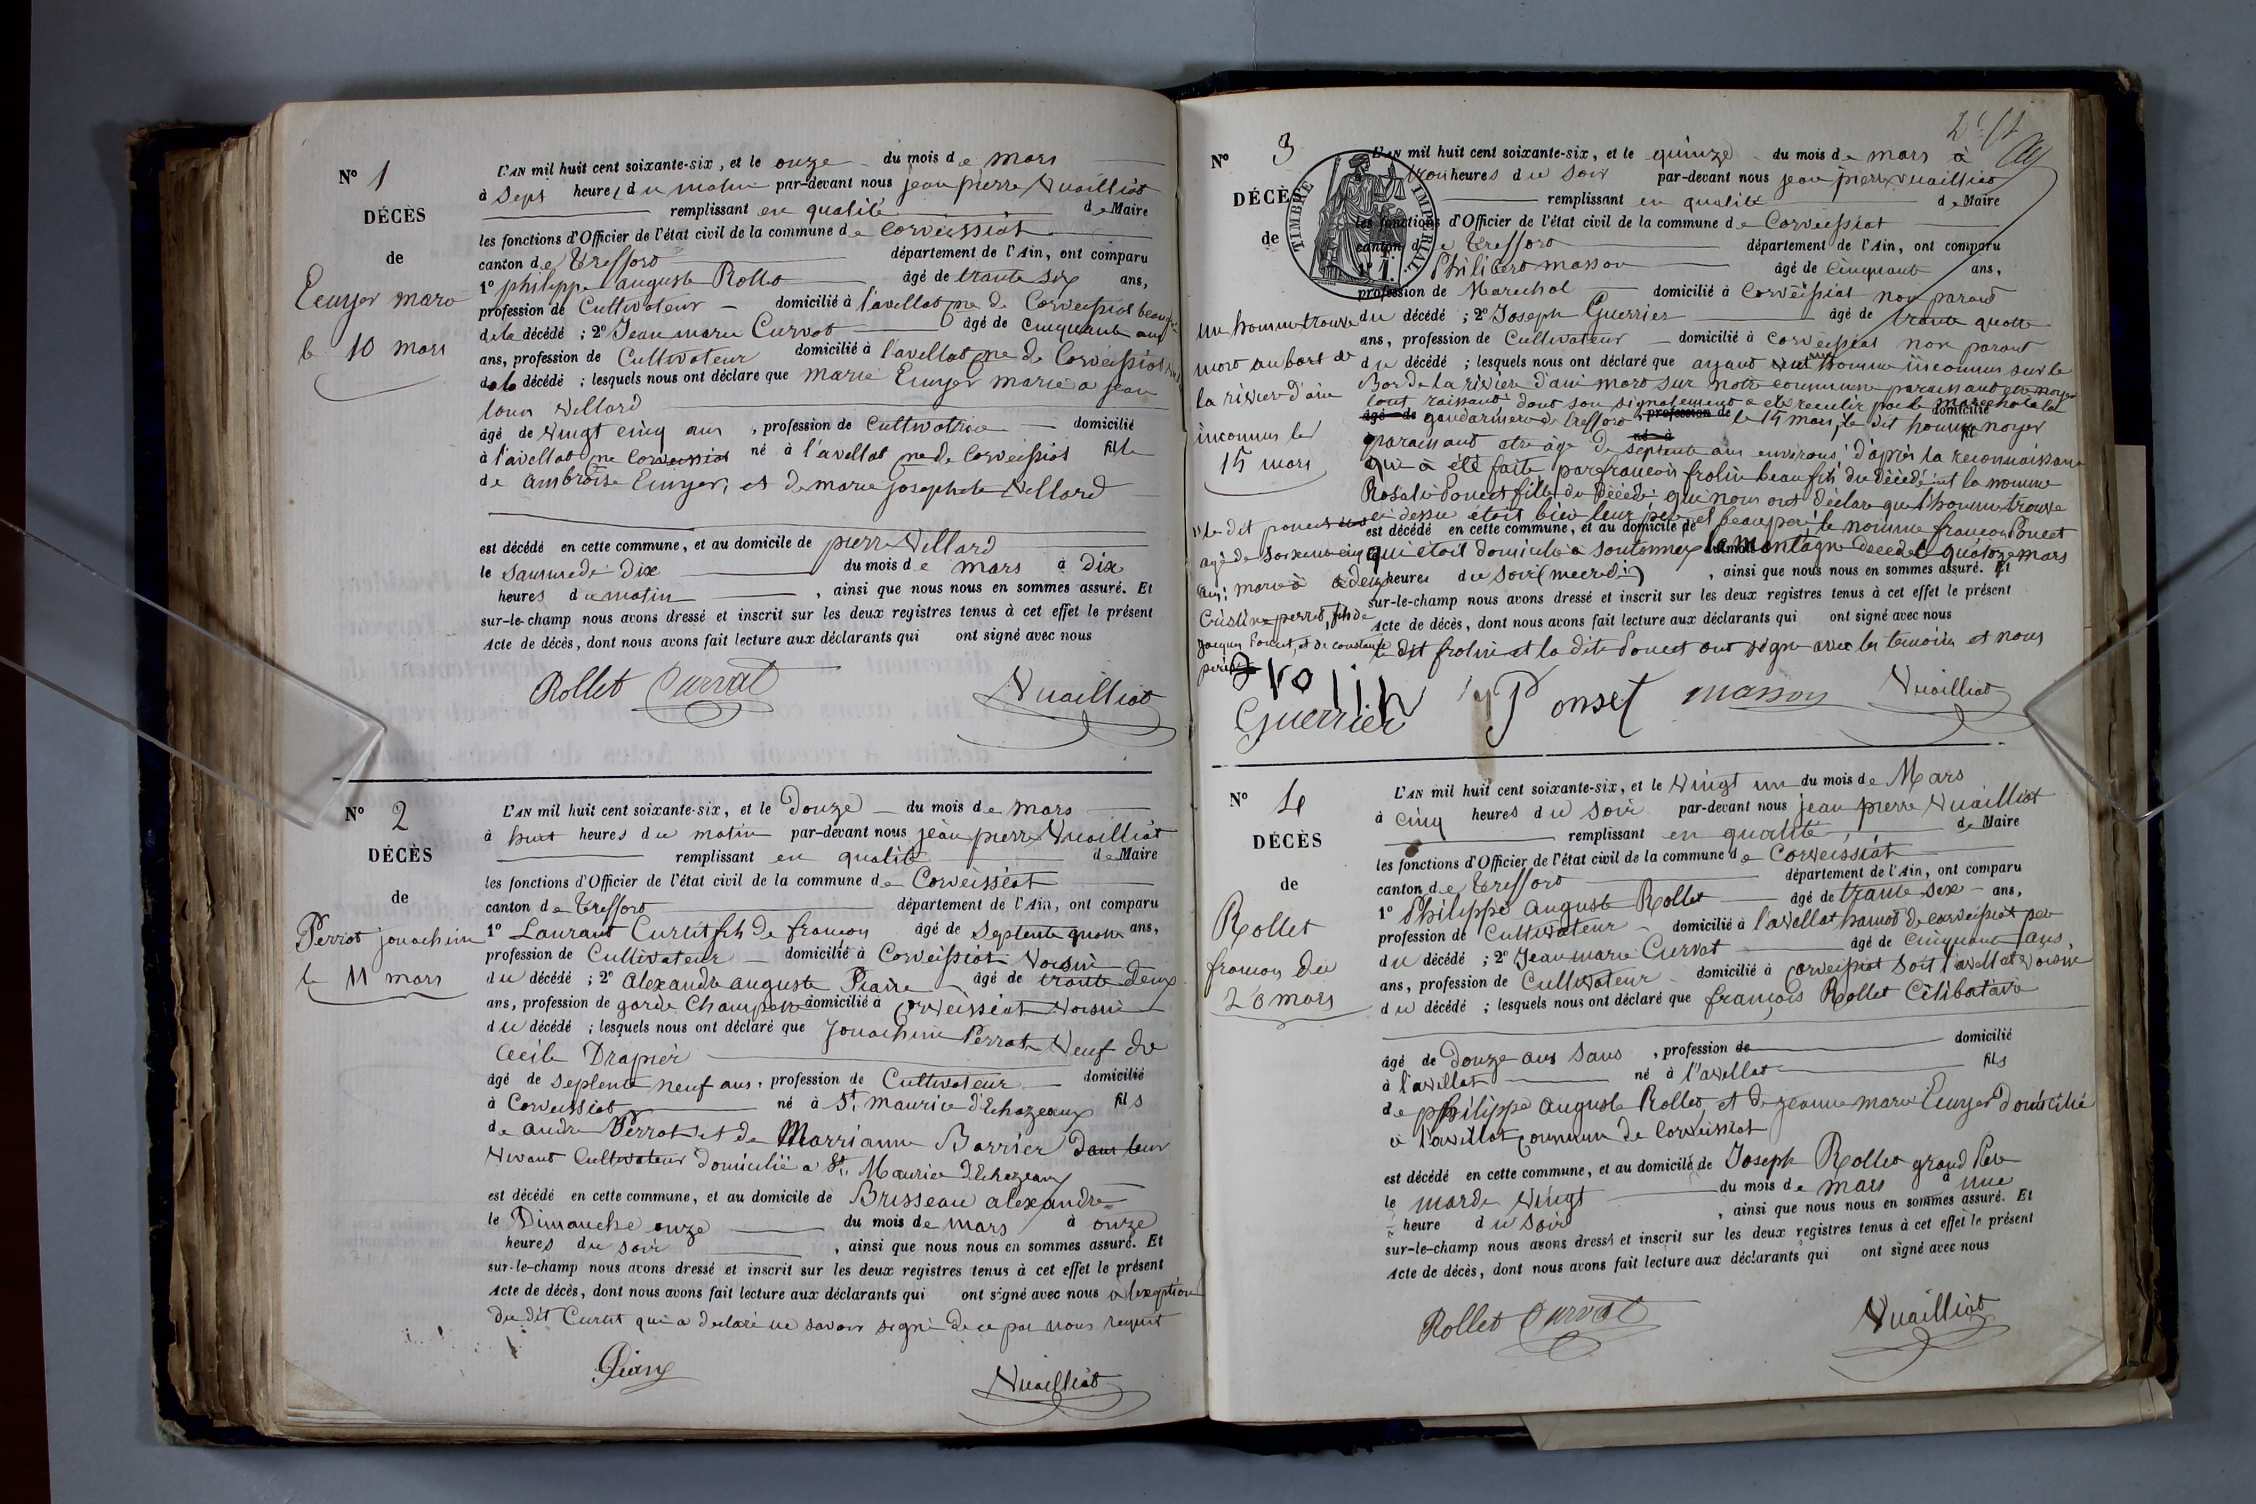 N° 1
DÉCÈS
de
Ecuyer marie
le 10 mars
L'AN mil huit cent soixante-six, et le onze du mois de mars
à Sept heures du matin par-devant nous jean pierre Vuailliat
remplissant en qualité de Maire
les fonctions d'Officier de l'état civil de la commune de Corveissiat
canton de Treffort département de l'Ain, ont comparu
1° philippe auguste Rollet âgé de trante six ans,
profession de Cultivateur domicilié à l'avellat cne de Corveissiat beau
de la décédé ; 2° Jean marie Curvat âgé de cinquante ans
ans, profession de Cultivateur domicilié à l'avellat cne de Corveissiat
de la décédé ; lesquels nous ont déclaré que marie Ecuyer marié a jean
louis Villard
âgé de vingt cinq ans, profession de Cultivatrice domicilié
à l'avellat cne Corveissiat né à l'avellat cne de Corveissiat fille
de ambroise Ecuyer, et de marie josephete Villard
est décédé en cette commune, et au domicile de pierre Villard
le Sammedi dix du mois de mars à dix
heures du matin, ainsi que nous nous en sommes assuré. Et
sur-le-champ nous avons dressé et inscrit sur les deux registres tenus à cet effet le présent
Acte de décès, dont nous avons fait lecture aux déclarants qui ont signé avec nous
Rollet Curvat Vuailliat
N° 2
DÉCÈS
de
Perrot jouachim
le 11 mars
L'AN mil huit cent soixante-six, et le Douze du mois de mars
à huit heures du matin par-devant nous jean pierre Vuailliat
remplissant en qualité de Maire
les fonctions d'Officier de l'état civil de la commune de Corveissiat
canton de Treffort département de l'Ain, ont comparu
1° Laurant Curtit fils de francois âgé de septente quatre ans,
profession de Cultivateur domicilié à Corveissiat Voisin
du décédé ; 2° alexandre auguste Piarre âgé de trante deux
ans, profession de garde Champetre domicilié à Corveissiat Voisin
du décédé ; lesquels nous ont déclaré que Jouachim Perrot Veuf de
Cecile Drapier
âgé de septente neuf ans, profession de Cultivateur domicilié
à Corveissiat né à St. maurice d'Echazeaux fils
de andré Perrot et de Marrianne Barrier dans leur
Vivant Cultivateur domicilié a St. Maurice d'Echazeaux
est décédé en cette commune, et au domicile de Brisseau alexandre
le Dimanche onze du mois de mars à onze
heures du soir, ainsi que nous nous en sommes assuré. Et
sur-le-champ nous avons dressé et inscrit sur les deux registres tenus à cet effet le présent
Acte de décès, dont nous avons fait lecture aux déclarants qui ont signé avec nous a l'exeption
du dit Curtit qui a declaré ne savoir signé de ce par nous requit
Vuailliat
N° 3
DÉCÈS
de
TIMBRE IMPÉRIAL
un homme trouvé
mort au bort de
la rivier d'ain
inconnu le
15 mars
L'AN mil huit cent soixante-six, et le quinze du mois de mars à
trois heures du soir par-devant nous jean pierre Vuailliat
remplissant en qualité de Maire
les fonctions d'Officier de l'état civil de la commune de Corveissiat
canton de Treffort département de l'Ain, ont comparu
1° Philibert masson âgé de cinquant ans,
profession de Marechal domicilié à Corveissiat non parant
du décédé ; 2° Joseph Guerrier âgé de trante quatre
ans, profession de Cultivateur domicilié à Corveissiat non parant
du décédé ; lesquels nous ont déclaré que ayant vu un homme inconnu sur le
Bor de la rivier d'ain mort sur notre commune paraissant etre noyer
dont son signalement a eté recullir par le marechal de la
âgé de gendarmerie de treffort profession de le 15 mars, le dit homme noyer domicilié
paraissant etre âgé de septente ans environs d'après la reconnaissance
que a été faite par francois frolin beau fils du décédé et la nomme
Rosalie Poncet fille du décédé que nous ont déclaré que l'homme trouvé
ci dessu étoit bien leur père et beau pere, le nomme francois Poncet
est décédé en cette commune, et au domicile de
qui étoit domicilié a Soutonnex la montagne decedé le quatorze mars
a deux heures du soir (mecredi), ainsi que nous nous en sommes assuré. Et
sur-le-champ nous avons dressé et inscrit sur les deux registres tenus à cet effet le présent
Acte de décès, dont nous avons fait lecture aux déclarants qui ont signé avec nous
le dit frolin et la dite Poncet ont signe avec les temoins et nous
le dit poncet
agé de soixente cinq
ans, marié a
Cristine perret, fils de
jacques Poncet, et de constance
frolin Ponset masson Vuailliat
Guerrier
N° 4
DÉCÈS
de
Rollet
francois du
20 mars
L'AN mil huit cent soixante-six, et le Vingt un du mois de Mars
à cinq heures du soir par-devant nous jean pierre Vuailliat
remplissant en qualité de Maire
les fonctions d'Officier de l'état civil de la commune de Corveissiat
canton de Treffort département de l'Ain, ont comparu
1° Philippe auguste Rollet âgé de trante six ans,
profession de Cultivateur domicilié à l'avellat hamot de corveissiat per
du décédé ; 2° Jean marie Curvat âgé de cinquant ans,
ans, profession de Cultivateur domicilié à corveissiat soit l'avellat voisin
du décédé ; lesquels nous ont déclaré que françois Rollet Célibataire
âgé de douze ans sans, profession de domicilié
à l'avellat né à l'avellat fils
de philippe auguste Rollet, et de jeanne marie Ecuyer Domicilié
a l'avellat commune de Corveissiat
est décédé en cette commune, et au domicile de Joseph Rollet grand Père
le mardi Vingt du mois de mars à une
heure du soir, ainsi que nous nous en sommes assuré. Et
sur-le-champ nous avons dressé et inscrit sur les deux registres tenus à cet effet le présent
Acte de décès, dont nous avons fait lecture aux déclarants qui ont signé avec nous
Rollet Curvat Vuailliat